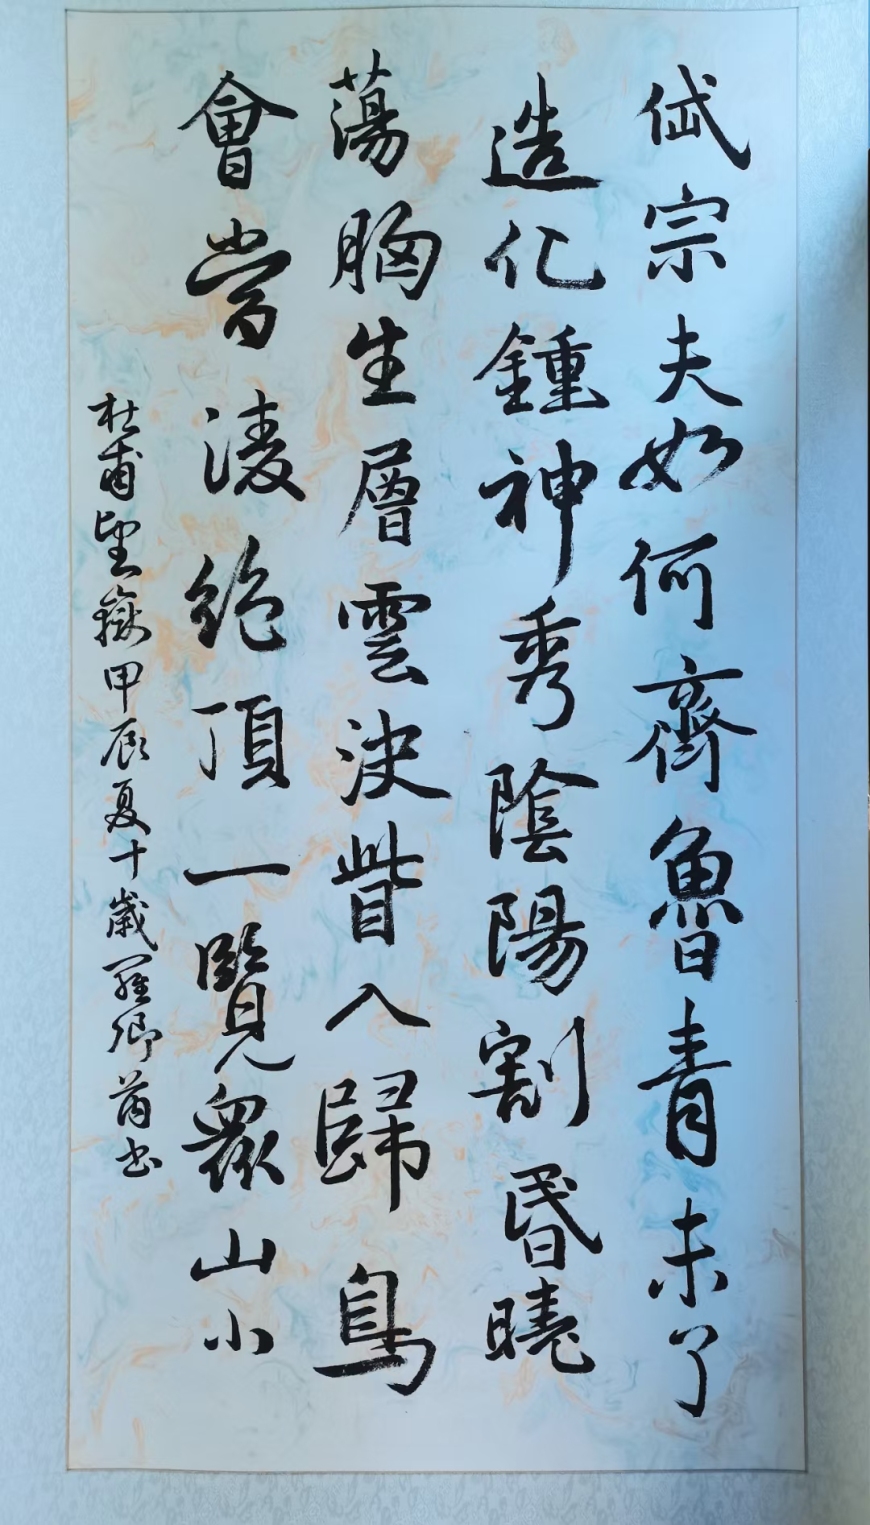 岱宗夫如何齊魯青未了
造化鍾神秀陰陽割昏曉
蕩胸生層雲決眥入歸鳥
會當淩絶頂一覽眾山小
杜甫望嶽甲辰夏十歲羅卿芮书